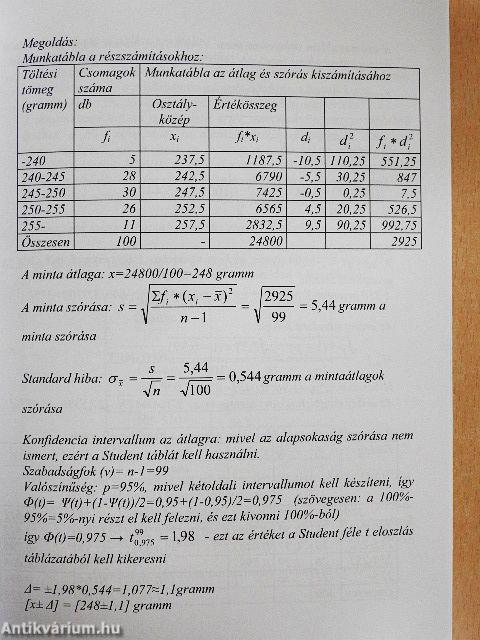 Megoldás:
Munkatábla a részszámításokhoz:
Töltési tömeg (gramm) Csomagok száma Munkatábla az átlag és szórás kiszámításához
db Osztály-közép Értékösszeg
fᵢ xᵢ fᵢ*xᵢ dᵢ dᵢ² fᵢ * dᵢ²
-240 5 237,5 1187,5 -10,5 110,25 551,25
240-245 28 242,5 6790 -5,5 30,25 847
245-250 30 247,5 7425 -0,5 0,25 7,5
250-255 26 252,5 6565 4,5 20,25 526,5
255- 11 257,5 2832,5 9,5 90,25 992,75
Összesen 100 - 24800 2925
A minta átlaga: x=24800/100=248 gramm
A minta szórása: s = √(Σfᵢ*(xᵢ – x̄)² / n – 1) = √(2925 / 99) = 5,44 gramm a
minta szórása
Standard hiba: σx̄ = s / √n = 5,44 / √100 = 0,544 gramm a mintaátlagok
szórása
Konfidencia intervallum az átlagra: mivel az alapsokaság szórása nem
ismert, ezért a Student táblát kell használni.
Szabadságfok (v)= n-1=99
Valószínűség: p=95%, mivel kétoldali intervallumot kell készíteni, így
Φ(t)= Ψ(t)+(1-Ψ(t))/2=0,95+(1-0,95)/2=0,975 (szövegesen: a 100%-
95%=5%-nyi részt el kell felezni, és ezt kivonni 100%-ból)
így Φ(t)=0,975 → t⁹⁹₀,₉₇₅ = 1,98 - ezt az értéket a Student féle t eloszlás
táblázatából kell kikeresni
Δ= ±1,98*0,544=1,077≈1,1gramm
[x± Δ] = [248±1,1] gramm
Antikvárium.hu